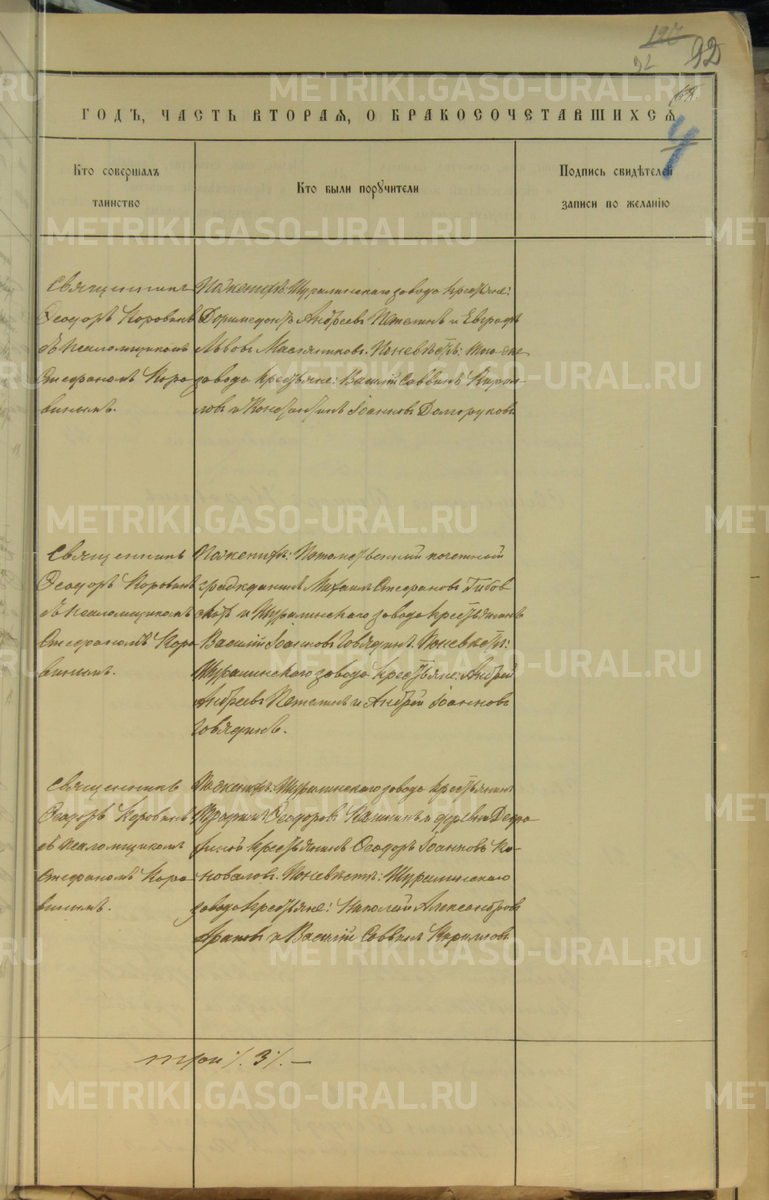 127
92
92
68.
4
ГОДЪ, ЧАСТЬ ВТОРАЯ, О БРАКОСОЧЕТАВШИХСЯ
Кто совершалъ
таинство
Кто были поручители
Подпись свидѣтелей
записи по желанію
Священникъ
Ѳеодоръ Коровинъ
съ псаломщикомъ
Стефаномъ Коро
винымъ.
По женихѣ: Шуралинскаго завода крестьяне:
Доримедонтъ Андреевъ Потапинъ и Евграфъ
Львовъ Масленниковъ. По невѣстѣ: того-же
завода крестьяне: Василій Саввинъ Кирил
ловъ и Константинъ Іоанновъ Долоруковъ
Священникъ
Ѳеодоръ Коровинъ
съ псаломщикомъ
Стефаномъ Коро
винымъ.
По женихѣ: Потомственный почетный
гражданинъ Михаилъ Стефановъ
и Шуралинскаго завода крестьянинъ
Василій Іоанновъ Говядинъ. По невѣстѣ:
Шуралинскаго завода крестьяне: Андрей
Андреевъ Потапинъ и Андрей Іоанновъ
Говядинъ.
Священникъ
Ѳеодоръ Коровинъ
съ псаломщикомъ
Стефаномъ Коро
винымъ.
По женихѣ: Шуралинскаго завода крестьянинъ
Ѳеодоровъ и деревни
крестьянинъ Ѳеодоръ Іоанновъ Ко-
новаловъ. По невѣстѣ: Шуралинскаго
завода крестьяне: Николай Александровъ
Араповъ и Василій Саввинъ Кирилловъ
три /. 3 /. —
METRIKI.GASO-URAL.RU